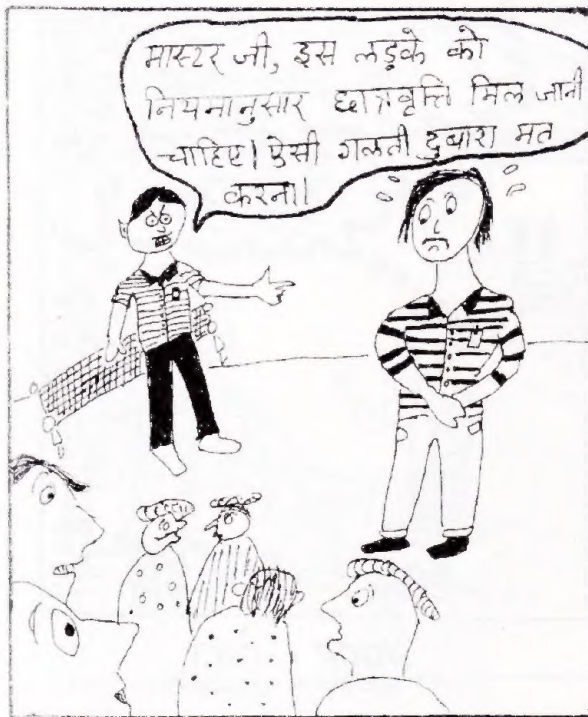 मास्टर जी, इस लड़के को
नियमानुसार छात्रवृत्ति मिल जानी
चाहिए। ऐसी गलती दुबारा मत
करना।